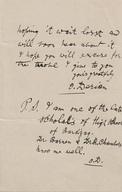 hoping it wait lost and
will soon hear about it
I hope you will excuse for
the trouble I give to you
yours gratefully
O. Dorian
P.S. I am one of the late
scholars of High School
of
Dr Barnum & Dr
know me well.
O.D.